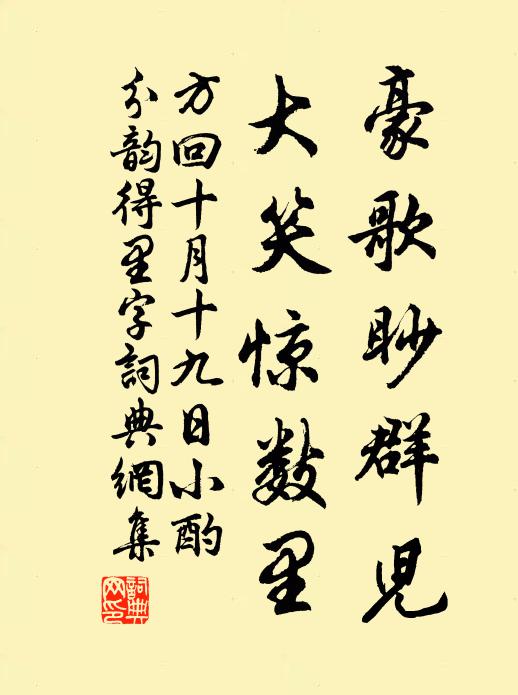 豪歌眇群児
大笑惊数里
方回十月十九日小酌
分韵得里字詞典網集
詞典网印